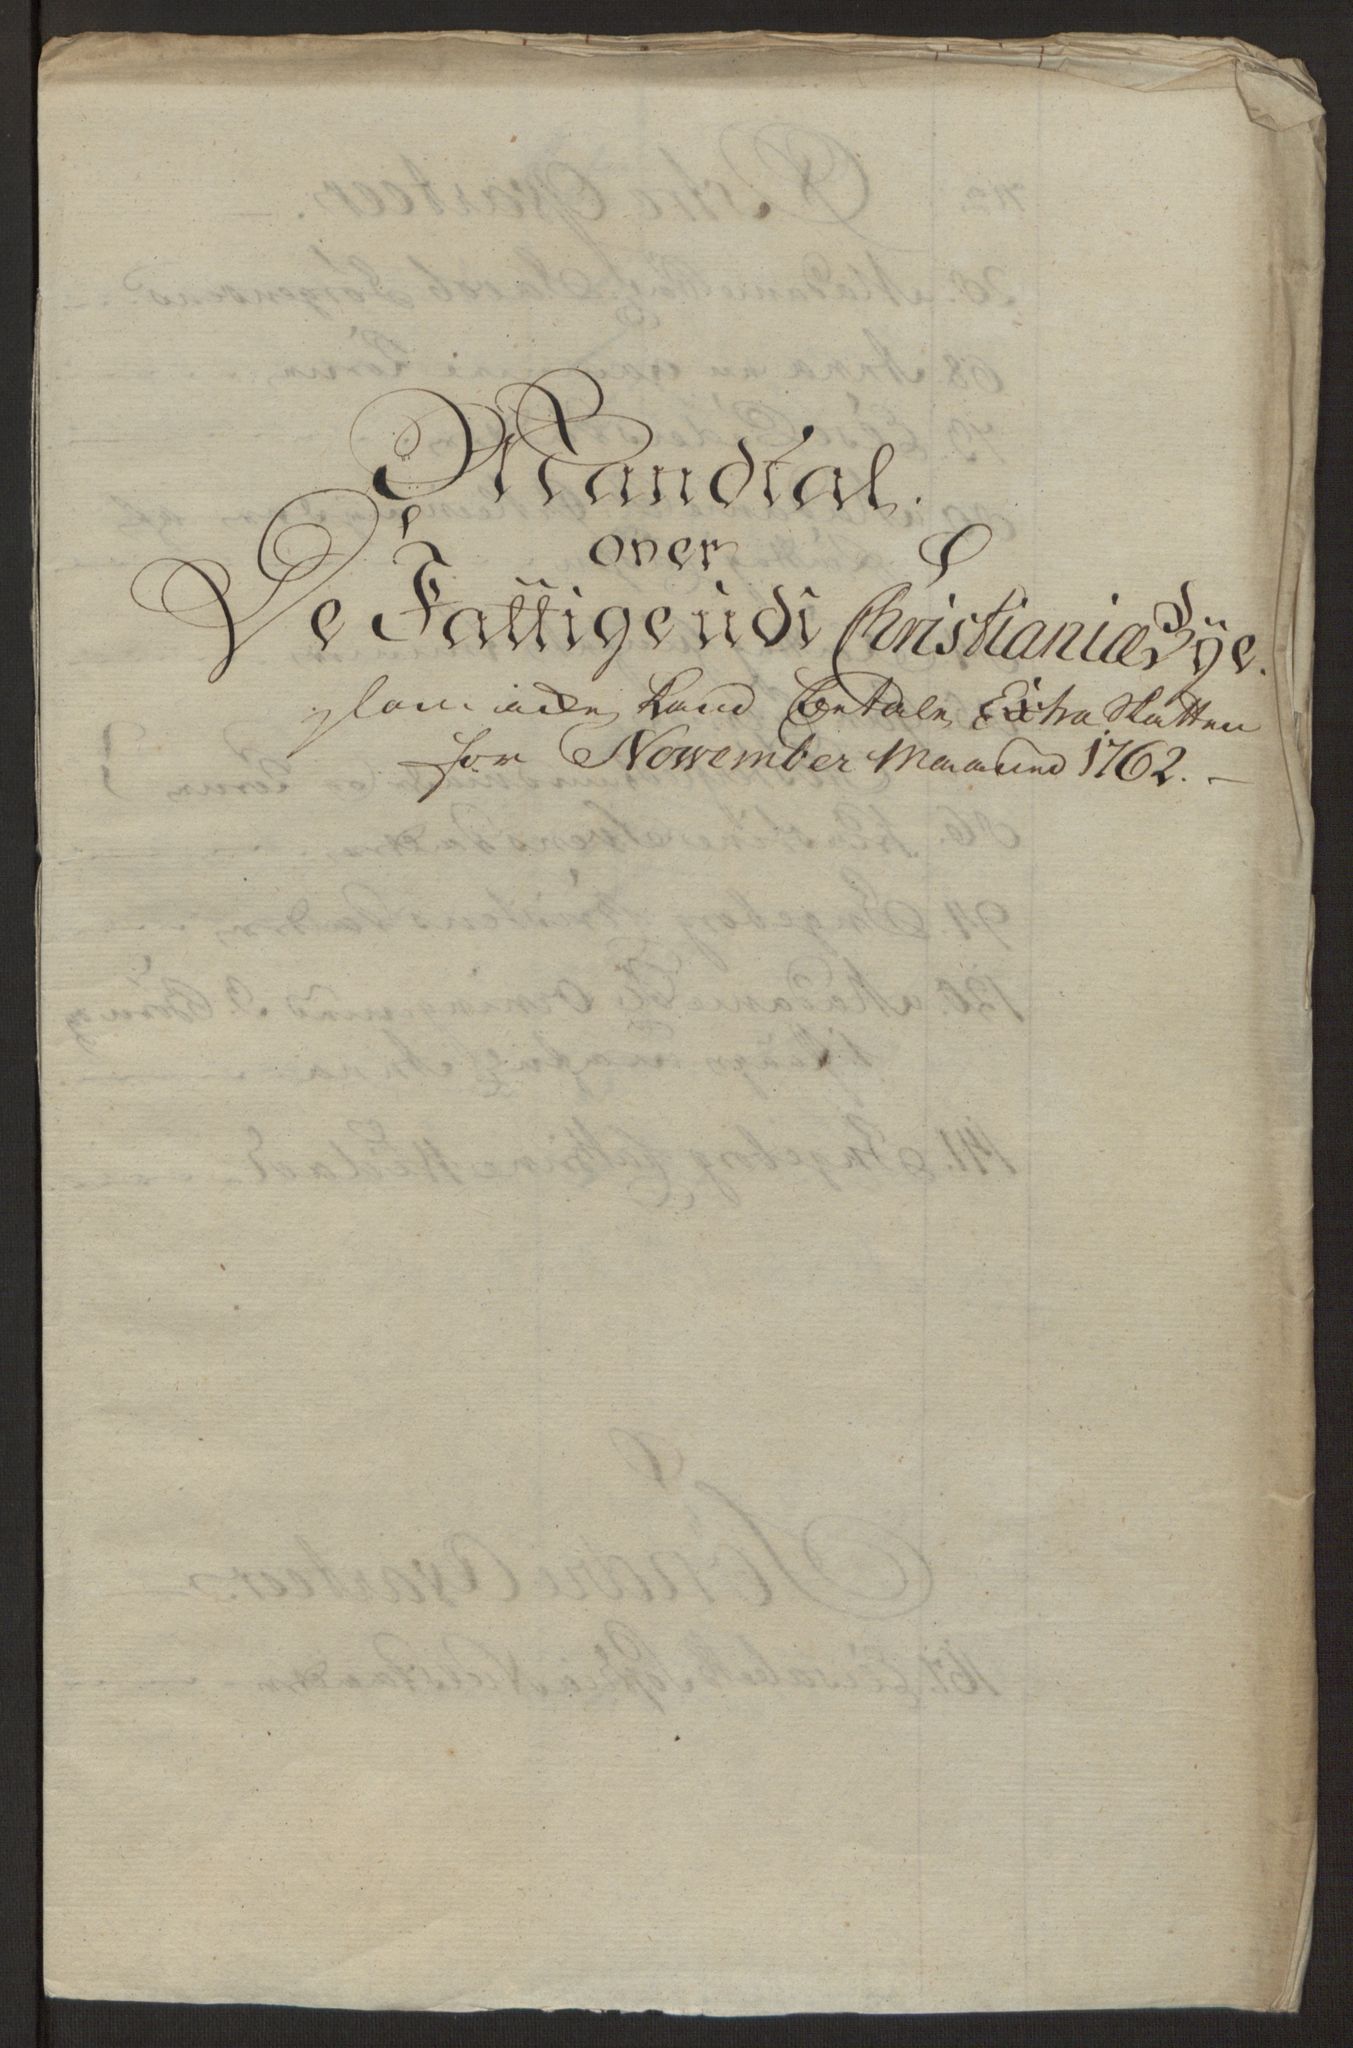 Mandtal
over
De Fattige udi Christianiæ Bÿe.
som icke kand betale Extra Skatten
for November Maaned 1762.